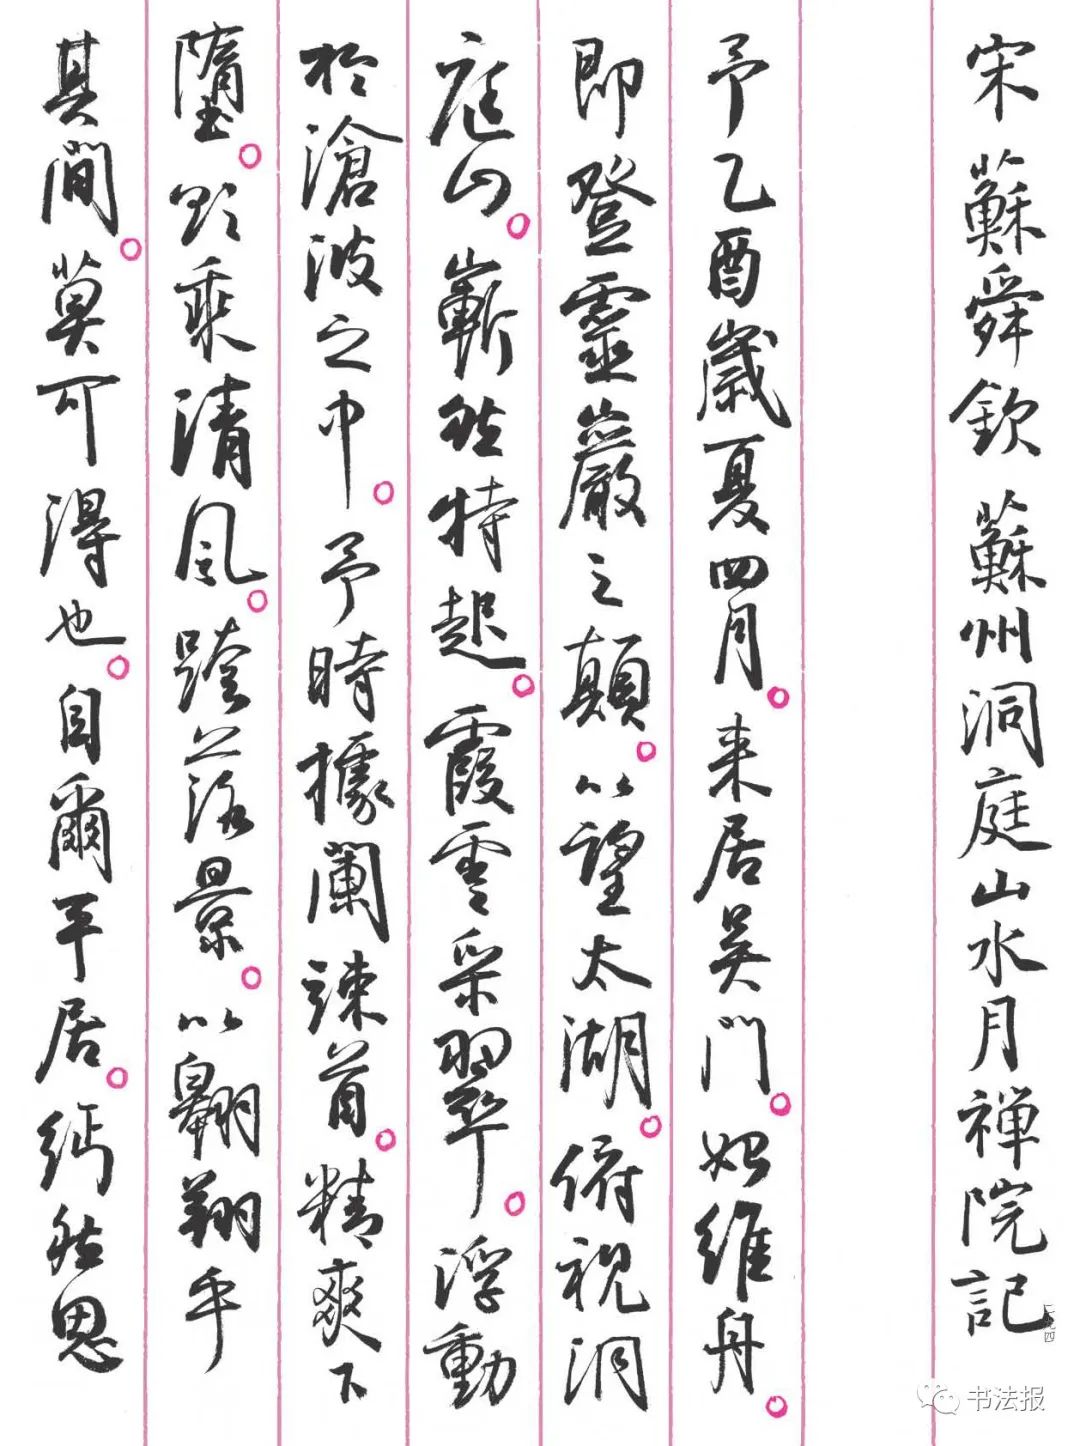 宋 蘇舜欽 蘇州洞庭山水月禅院記
一九四
予乙酉歲夏四月。来居吴門。始維舟。
即登靈巖之顛。以望太湖。俯視洞
庭山。嶄然特起。霞雲采翠。浮動
於滄波之中。予時據闌竦首。精爽下
墮。欲乘清風。跨落景。以翱翔乎
其間。莫可得也。自爾平居。缟然思
书法报